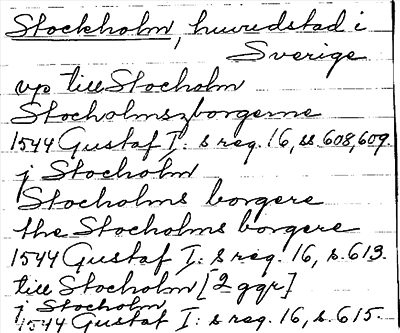 Stockholm, huvudstad i
Sverige
vp till Stocholm
Stocholmszborgerne
1544 Gustaf I: s reg. 16, ss 608, 609.
j Stocholm
Stocholms borgere
the Stocholms borgere
1544 Gustaf I: s reg. 16, s. 613.
till Stocholm [2 ggr]
j Stocholm
1544 Gustaf I: s reg. 16, s. 615.